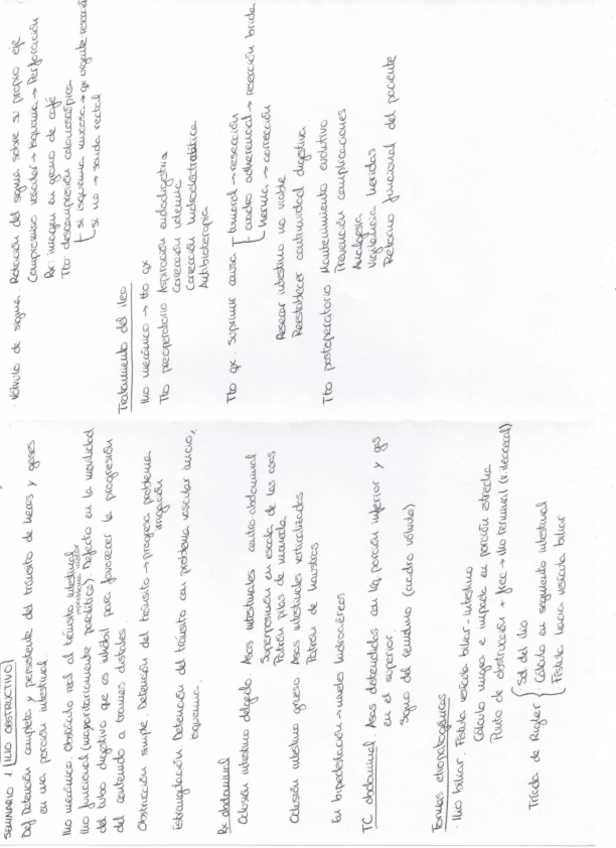 SEMINARIO 1 ILIO OBSTRUCTIVO
Def Detención completa y persistente del tránsito de heces y gases
en una porción intestinal.
Ilio mecánico. Obstáculo real al tránsito intestinal
Ilio funcional (mayoritariamente paralítico). Defecto en la movilidad
del tubo digestivo que es inhábil para favorecer la progresión
del contenido a tramos distales
Obstrucción simple. Detención del tránsito → progresa problema
irrigación
Estrangulación. Detención del tránsito con problema vascular inicio,
isquemia.
Rx abdominal
Oclusión intestino delgado Asas intestinales centro abdominal
Superposición en escala de las asas
Patrón pilas de moneda
Oclusión intestino grueso Asas intestinales verticalizadas
Patrón de haustras
En bipedestación → niveles hidroaéreos
TC abdominal. Asas distendidas con líq porción inferior y gas
en el superior
Signo del remolino (cuadro vólvulo)
Formas etiopatogénicas
· Ilio biliar. Fístula vesícula biliar - intestino
Cálculo migra e impacta en porción estrecha
Punto de obstrucción + frec → ilio terminal (v ileocecal)
Triada de Rigler { Sd del ilio
Cálculo en segmento intestinal
Fístula hacia vesícula biliar
· Vólvulo de sigma. Rotación del sigma sobre su propio eje
Compromiso vascular → Isquemia → Perforación
Rx: imagen en grano de café
Tto: descompresión colonoscópica
si isquemia mucosa → qx urgente resección
si no → sonda rectal
Tratamiento del ileo
Ilio mecánico → tto qx
Tto preoperatorio Aspiración endodigestiva
Corrección volemia
Corrección hidroelectrolítica
Antibioterapia
Tto qx. Suprimir causa tumoral → resección
cuadro adherencial → resección brida
hernia → corrección
Resecar intestino no viable
Reestablecer continuidad digestiva
Tto postoperatorio Mantenimiento evolutivo
Prevención complicaciones
Analgesia
Vigilancia heridas
Retorno funcional del paciente